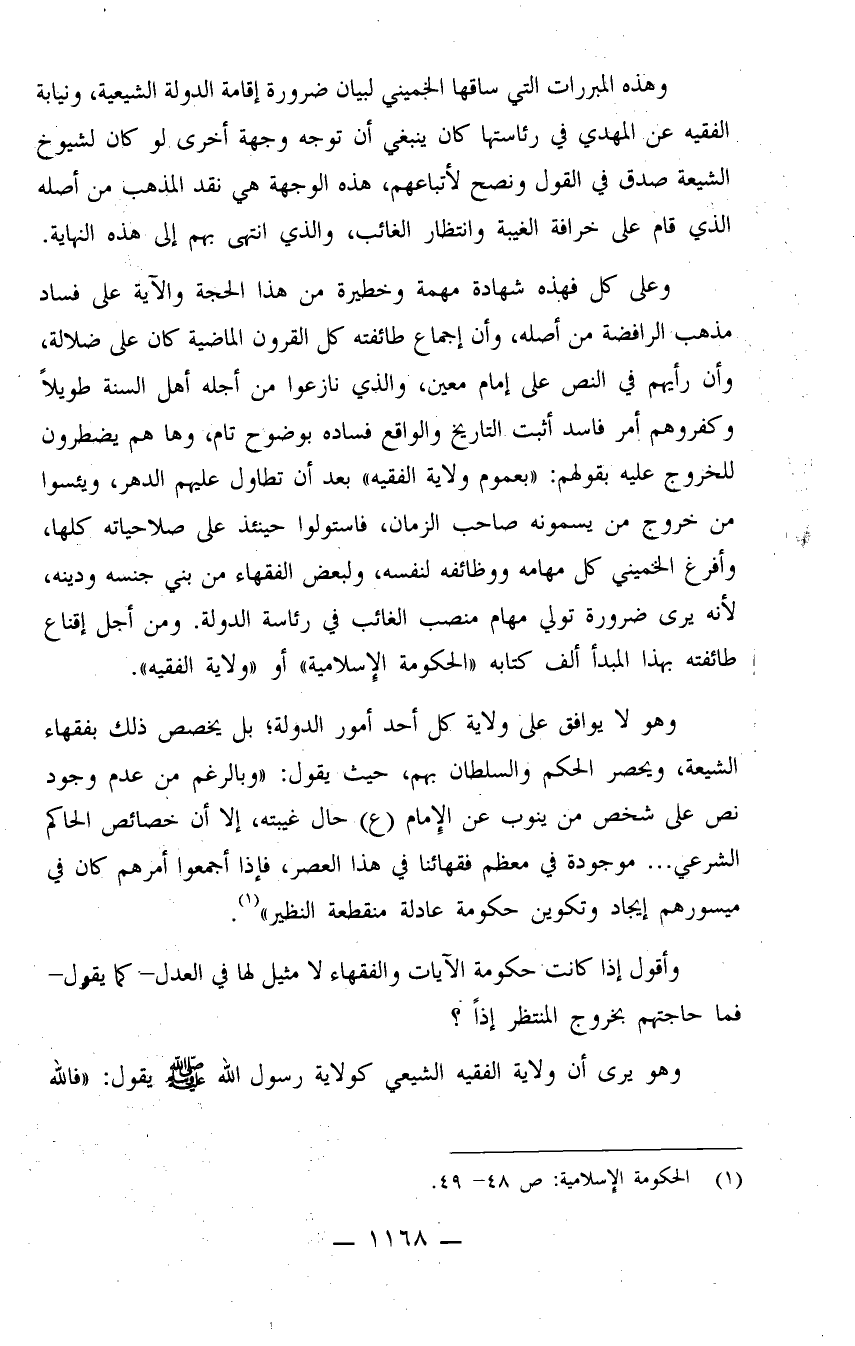 وهذه المبررات التي ساقها الخميني لبيان ضرورة إقامة الدولة الشيعية، ونيابة
الفقيه عن المهدي في رئاستها كان ينبغي أن توجه وجهة أخرى لو كان لشيوخ
الشيعة صدق في القول ونصح لأتباعهم، هذه الوجهة هي نقد المذهب من أصله
الذي قام على خرافة الغيبة وانتظار الغائب، والذي انتهى بهم إلى هذه النهاية.
وعلى كل فهذه شهادة مهمة وخطيرة من هذا الحجة والآية على فساد
مذهب الرافضة من أصله، وأن إجماع طائفته كل القرون الماضية كان على ضلالة،
وأن رأيهم في النص على إمام معين، والذي نازعوا من أجله أهل السنة طويلاً
وكفروهم أمر فاسد أثبت التاريخ والواقع فساده بوضوح تام، وها هم يضطرون
للخروج عليه بقولهم: «بعموم ولاية الفقيه» بعد أن تطاول عليهم الدهر، ويئسوا
من خروج من يسمونه صاحب الزمان، فاستولوا حينئذ على صلاحياته كلها،
وأفرغ الخميني كل مهامه ووظائفه لنفسه، ولبعض الفقهاء من بني جنسه ودينه،
لأنه يرى ضرورة تولي مهام منصب الغائب في رئاسة الدولة. ومن أجل إقناع
طائفته بهذا المبدأ ألف كتابه «الحكومة الإسلامية» أو «ولاية الفقيه».
وهو لا يوافق على ولاية كل أحد أمور الدولة؛ بل يخصص ذلك بفقهاء
الشيعة، ويحصر الحكم والسلطان بهم، حيث يقول: «وبالرغم من عدم وجود
نص على شخص من ينوب عن الإمام (ع) حال غيبته، إلا أن خصائص الحاكم
الشرعي... موجودة في معظم فقهائنا في هذا العصر، فإذا أجمعوا أمرهم كان في
ميسورهم إيجاد وتكوين حكومة عادلة منقطعة النظير»(١).
وأقول إذا كانت حكومة الآيات والفقهاء لا مثيل لها في العدل– كما يقول–
فما حاجتهم بخروج المنتظر إذاً ؟
وهو يرى أن ولاية الفقيه الشيعي كولاية رسول الله ﷺ يقول: «فالله
(١) الحكومة الإسلامية: ص ٤٨– ٤٩.
— ١١٦٨ —